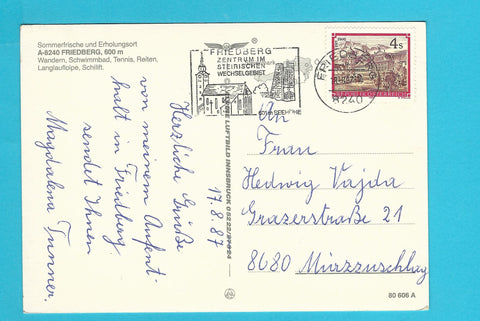 Sommerfrische und Erholungsort
A-8240 FRIEDBERG, 600 m
Wandern, Schwimmbad, Tennis, Reiten,
Langlaufloipe, Schilift.
17.8.87
Herzliche Grüße
von meinem Aufent-
halt in Friedberg
sendet Ihnen
Magdalena Tunner.
LUFTBILD INNSBRUCK
FRIEDBERG
ZENTRUM IM
STEIRISCHEN
WECHSELGEBIET
601m SEEHÖHE
8240
4 S
REPUBLIK ÖSTERREICH
An
Frau
Hedwig Vajda
Grazerstraße 21
8680 Mürzzuschlag
80 606 A